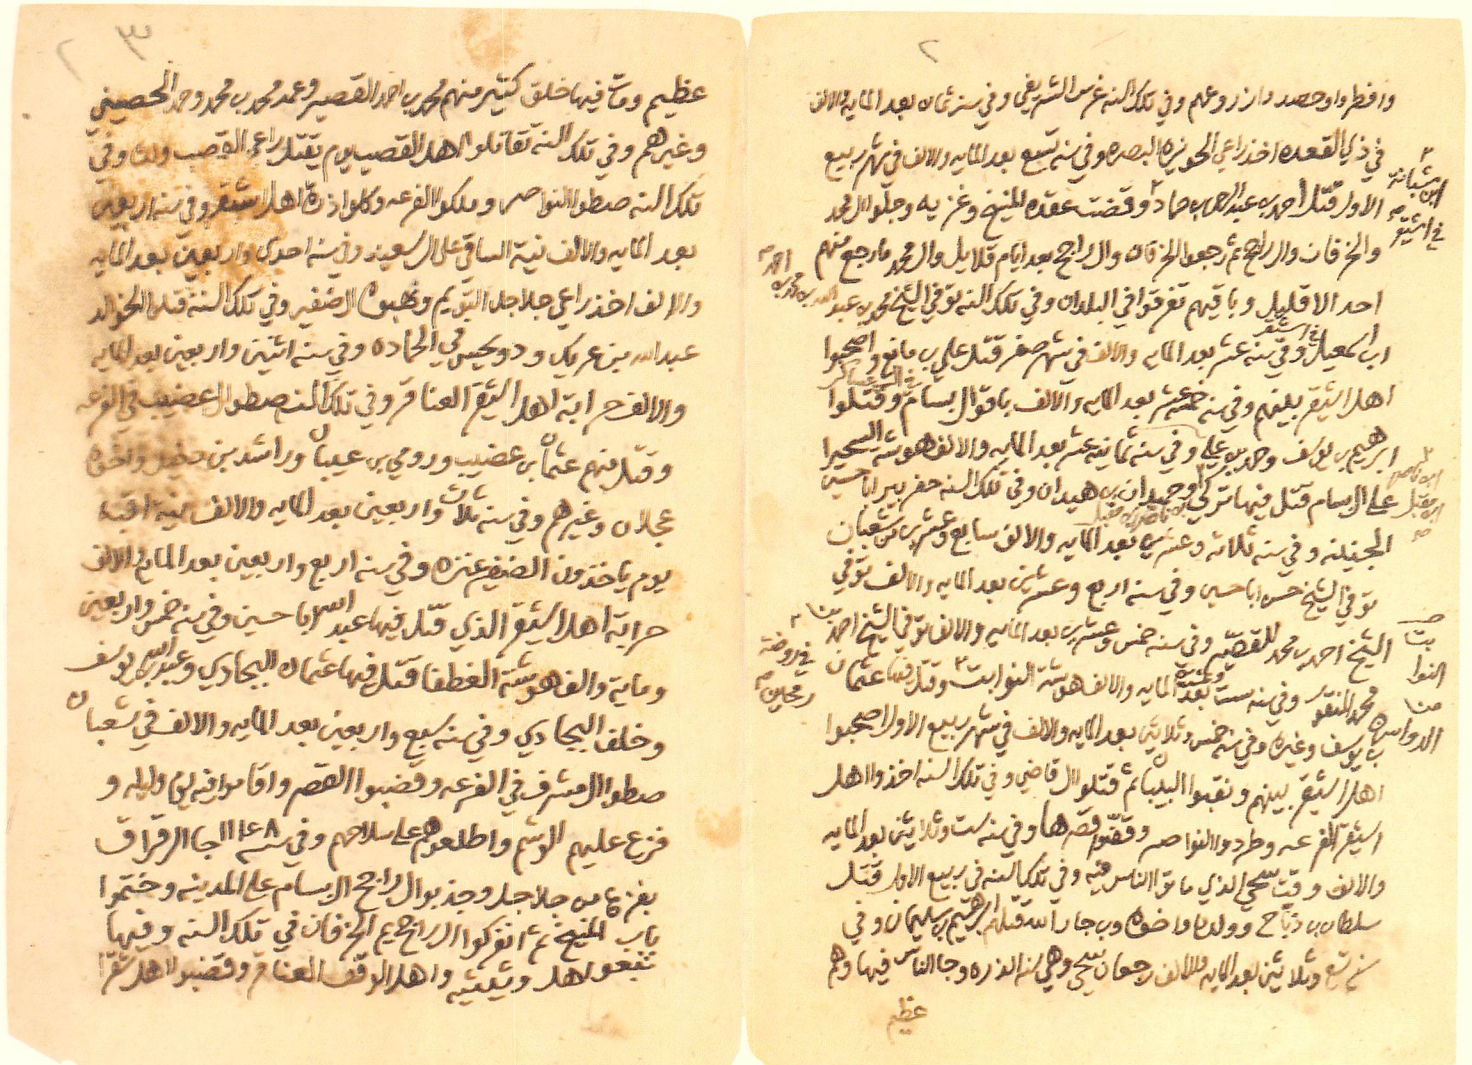 ٢
وافطروا وحصد وا زروعهم وفي تلك السنه غرس الشريفي وفي سنة ثمان بعد المايه والالف
في ذي القعده اخذ راعي الحويزه البصره وفي سنه تسع بعد المايه والالف في شهر ربيع
الاول قتل احمد بن عبد الرحمن بن حماد وقضت عقده للمنيخ وغزيه وجلوا ال محمد
والخرفان وال راجح ثم رجعوا الخرفان وال راجح بعد ايام قلايل وال محمد ما رجع منهم
احد الا قليل وباقيهم تفرقوا في البلدان وفي تلك السنه توفي الشيخ محمد بن عبد الله
اب اسمعيل في اشيقر وفي سنه عشر بعد المايه والالف في شهر صفر قتل علي بن مانع واصحبوا
اهل اشيقر بينهم وفي سنه خمسة عشر بعد المايه والالف باقوا ال بسام وقتلوا
ابرهيم بن يوسف وحمد بن علي وفي سنه ثمانية عشر بعد المايه والالف هوشة السحيرا
على ال بسام قتل فيها تركي وحميدان بن هيدان وفي تلك السنه حفر بير ابا حسين
الجفيله وفي سنه ثلاثه وعشرين بعد المايه والالف سابع وعشرين من شعبان
توفي الشيخ حسن ابا حسين وفي سنه اربع وعشرين بعد المايه والالف توفي
الشيخ احمد بن محمد القصيّر وفي سنه خمس وعشرين بعد المايه والالف توفي الشيخ احمد بن
محمد المنقور وفي سنه ست وعشره بعد المايه والالف هوشة النوابت وقتل فيها عثمان
بن يوسف وغيره وفي سنه خمس وثلاثين بعد المايه والالف في شهر ربيع الاول اصحبوا
اهل اشيقر بينهم ونقبوا البليبا ثم قتلوا ال قاضي وفي تلك السنه اخذوا اهل
اشيقر الفرعه وطردوا النواصر وقضّوا قصرها وفي سنه ست وثلاثين بعد المايه
والالف وقت سحي الذي ماتوا الناس فيه وفي تلك السنه في ربيع الاول قتل
سلطان بن ذباح وولده واخوه وب جار الله قتلهم ابرهيم بن سليمان وفي
سنه تسع وثلاثين بعد المايه والالف رجعان سحي وهي سنة الذره وجا الناس فيها وهم
عظيم
ابن شبانة
في اشيقر
احمد بن محمد
ابن ناصر
ابن مقبل
في روضة
رمحين
النوا
الدواسر
٣
عظيم ومات فيها خلق كثير منهم محمد بن احمد القصير وحمد بن محمد وحمد الحصيني
وغيرهم وفي تلك السنة تقاتلوا اهل القصب يوم يقتل راعي القصب ولده وفي
تلك السنه صطوا النواصر وملكوا الفرعه وكلوا ذرة اهل اشيقر وفي سنة اربعين
بعد المايه والالف نية الساقي على ال سعيد وفي سنه احدى واربعين بعد المايه
والالف اخذ راعي جلاجل التويم ونهبوه الضفير وفي تلك السنة قتلوا الخوالد
عبدالله بن عريك ودويحس في الحماده وفي سنه اثنين واربعين بعد المايه
والالف حرابة اهل اشيقر العناقر وفي تلك السنه صطوا ال عضيب في الفرعه
وقتل منهم عثمان بن عضيب ورومي بن عيبان وراشد بن حفيد واخوه
عجلان وغيرهم وفي سنه ثلاث واربعين بعد المايه والالف نية اقبه
يوم ياخذون الضفير عنزه وفي سنه اربع واربعين بعد المايه والالف
حرابة اهل اشيقر الذي قتل فيها عبد الله ابا حسين وفي سنه خمس واربعين
ومايه والف هوشة الغطفا قتل فيها عثمان البجادي وعبد الله بن يوسف
وخلف البجادي وفي سنه سبع واربعين بعد المايه والالف في شعبان
صطوا ال مشرف في الفرعه وقضبوا القصر واقاموا فيه يوم وليله و
فزع عليهم الوشم واطلعوهم على سلاحهم وفي سنة ١١٤٨ جا الرقراق
بفزعة من جلاجل وجذبوا ال راجح ال بسام على المدينه وختموا
باب المنيخ ثم انفركوا ال راجح يم الخرفان في تلك السنه وفيها
تتعولا اهل وثيثيه واهل الوقف العناقر وقضبوا اهل شقرا